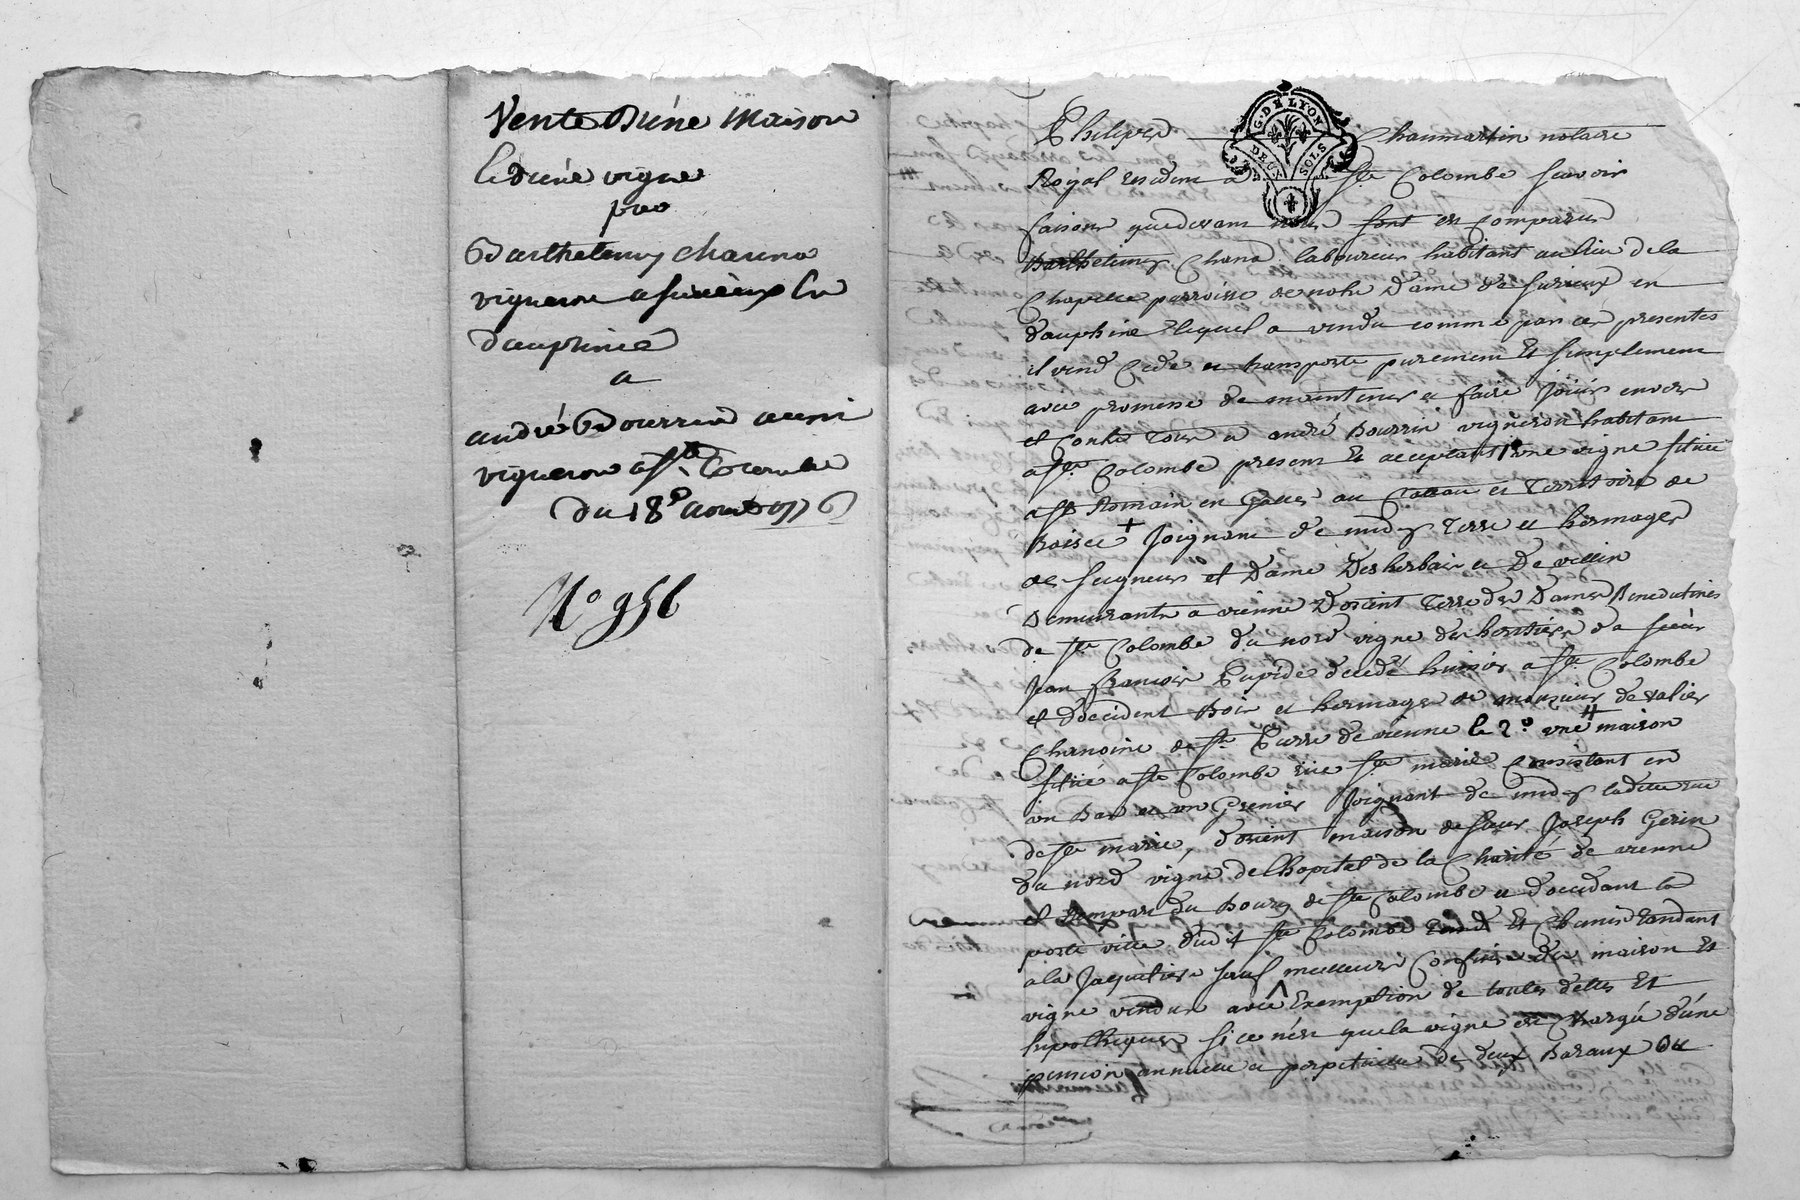 Vente D'une Maison
Et d'une vigne
par
Barthelemy chauna
vigneron a surieux En
dauphiné
a
andré Bourrin aussi
vigneron a Ste Colombe
du 18e aoust 1776
No 956
G. DE LYON
DEUX SOLS
Philippe Chaumartin notaire
Royal residant a Ste Colombe scavoir
faisons que devant nous sont es comparus
Barthelemy Chana laboureur habitant au lieu de la
Chapelle parroisse de notre Dame de Surieux en
dauphine lequel a vendu comme par ces presentes
il vend Cede et transporte purement Et simplement
avec promesse de maintenir et faire Joüir envers
et Contre tous a andré Bourrin vigneron habitant
a Ste Colombe present Et acceptant 1° une vigne située
a St Romain en Galles au Coteau et Territoire de
Boisse + Joignant de midy Terre et hermages
de seigneur et Dame Desherbais et De vellin
Demeurants a vienne D'orient Terre des Dames Benedictines
de Ste Colombe du nord vigne des heritiers du sieur
Jean francois Cupide decedé huissier a Ste Colombe
et d'occident Bois et hermages de monsieur de valier
Chanoine de St Pierre de vienne le 2° une maison
située a Ste Colombe rüe Ste marie Consistant en
un Bas et un Grenier Joignant de midy laditte rue
de Ste marie, d'orient maison de sieur Joseph Gerin
du nord vigne de l'hopital de la Charité de vienne
et rempart du Bourg de Ste Colombe et d'occidant la
porte ville dudit Ste Colombe Et Chemin Tendant
a la Jaquetiere sauf meilleurs Confins des maison Et
vigne vendus avec Exemption de toutes dettes Et
hipotheques si ce n'est que la vigne est Chargée d'une
pension annuelle et perpetuelle de deux Baraux du